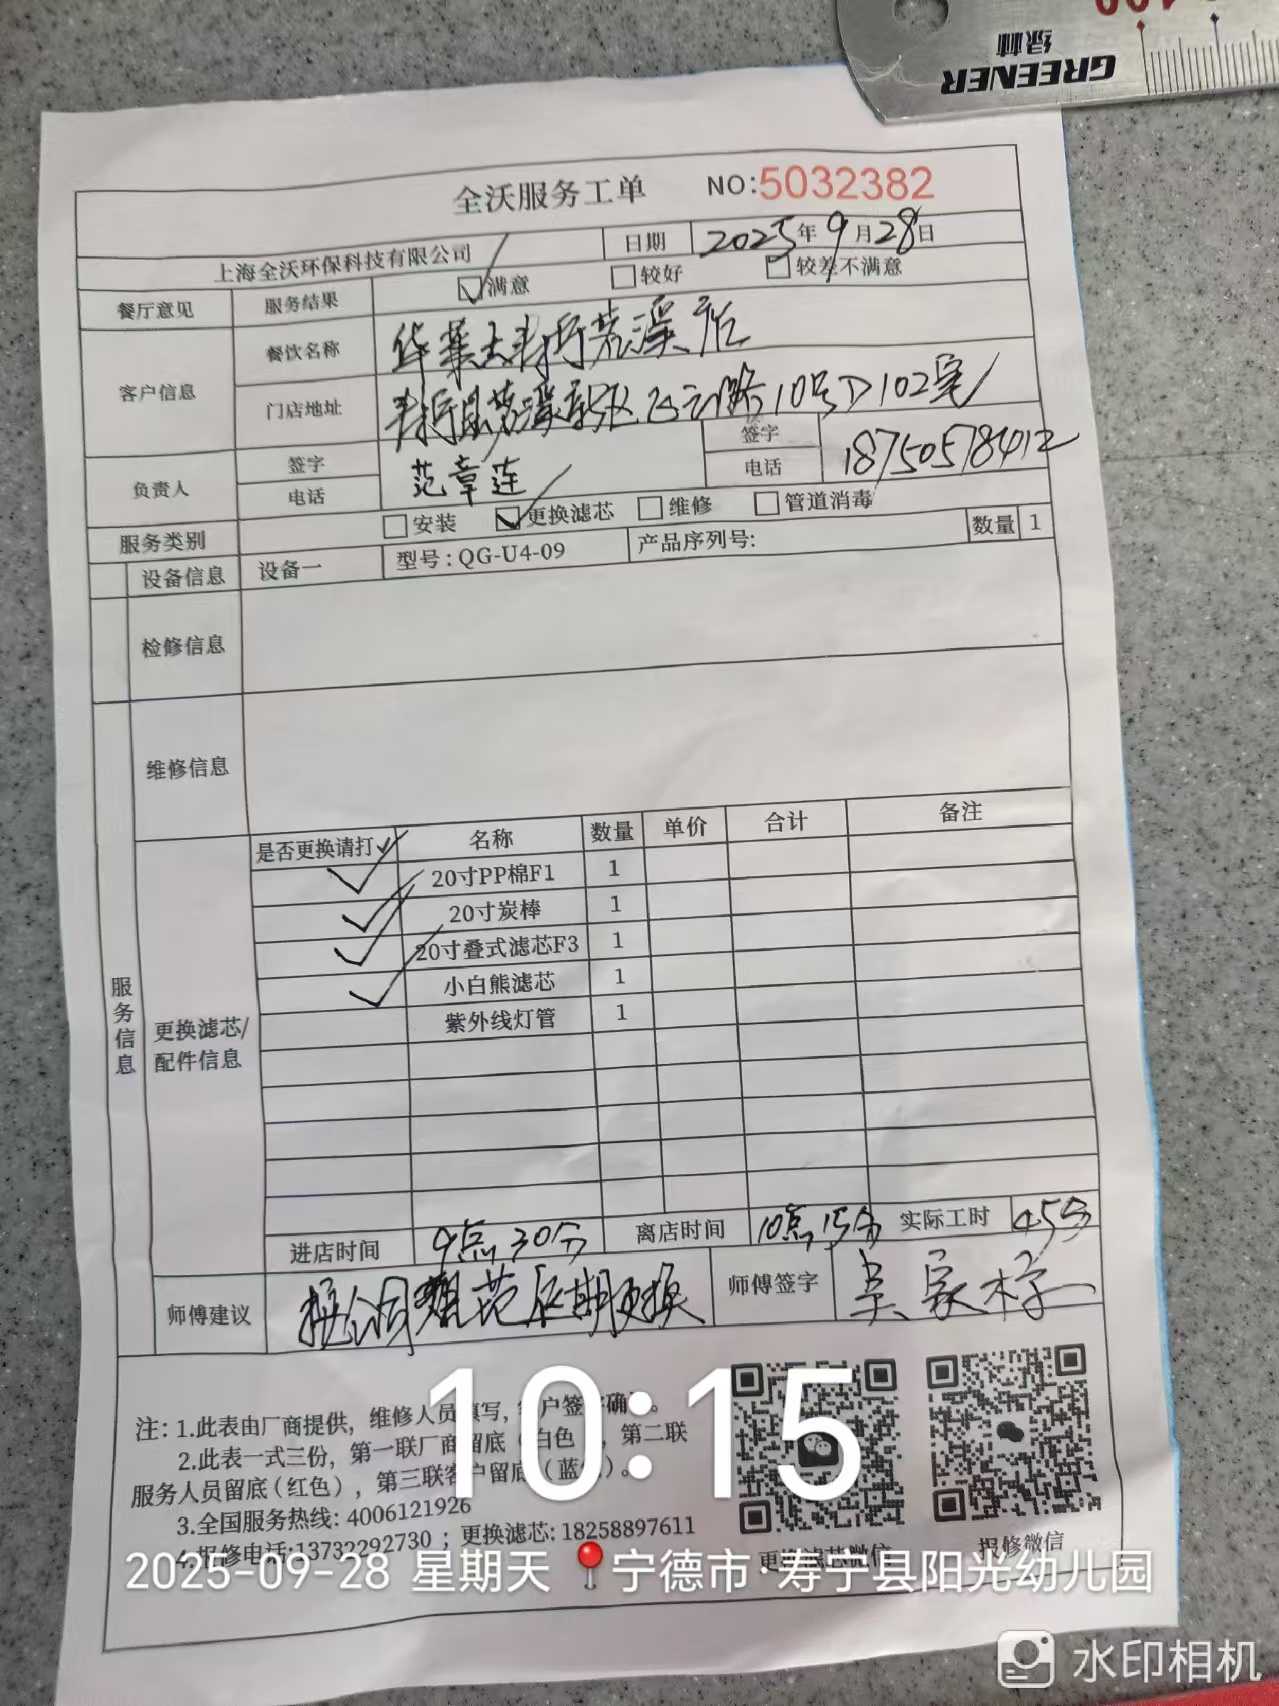 GREENER
绿林
全沃服务工单 NO:5032382
上海全沃环保科技有限公司 日期 2025年9月28日
餐厅意见 服务结果 ☑满意 □较好 □较差不满意
客户信息 餐饮名称 华莱士寿宁茗溪店
门店地址 寿宁县茗溪新区 路10号D102室
负责人 签字 电话 范章连 签字 电话 18750578412
服务类别 □安装 ☑更换滤芯 □维修 □管道消毒
设备信息 设备一 型号:QG-U4-09 产品序列号: 数量 1
检修信息
维修信息
服务信息
更换滤芯/配件信息
是否更换请打✓ 名称 数量 单价 合计 备注
✓ 20寸PP棉F1 1
✓ 20寸炭棒 1
✓ 20寸叠式滤芯F3 1
✓ 小白熊滤芯 1
紫外线灯管 1
进店时间 9点30分 离店时间 10点15分 实际工时 45分
师傅建议 按公司规范定期更换 师傅签字 吴家
注: 1.此表由厂商提供，维修人员填写，客户签字确
2.此表一式三份，第一联厂商留底（白色），第二联
服务人员留底（红色），第三联客户留底（蓝色）。
3.全国服务热线: 4006121926
4.报修电话:13732292730；更换滤芯: 18258897611
更换滤芯微信 报修微信
10:15
2025-09-28 星期天 宁德市·寿宁县阳光幼儿园
水印相机